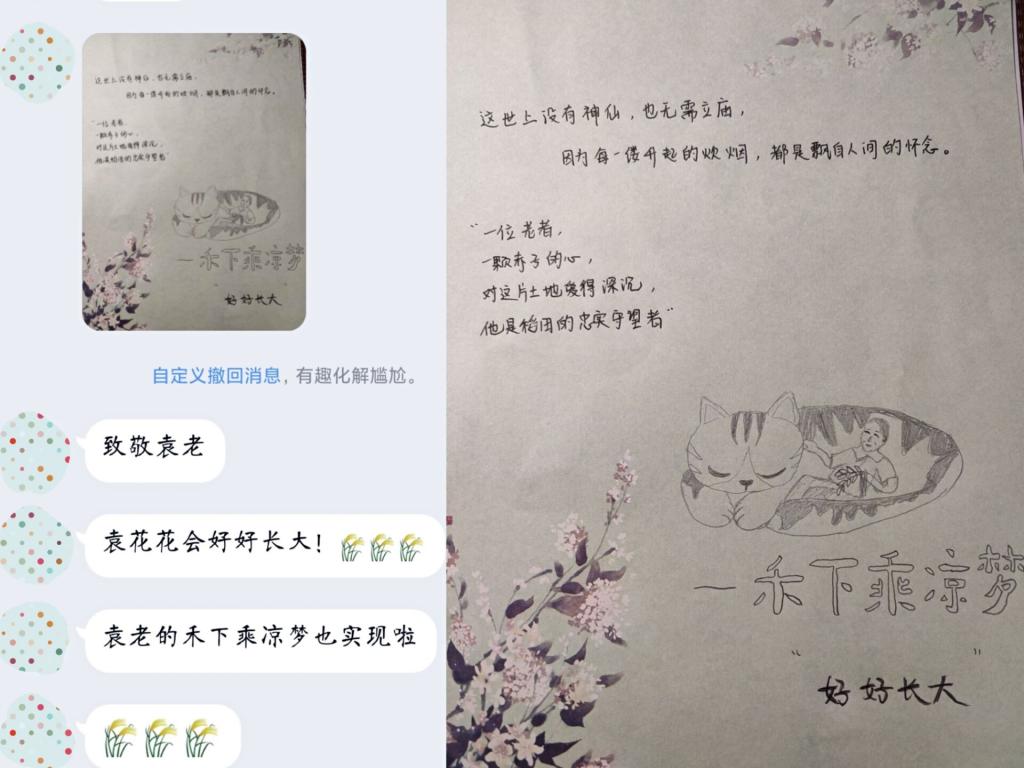 这世上没有神仙，也无需立庙，
因为每一缕升起的炊烟，都是飘自人间的怀念。
“一位老者，
一颗赤子的心，
对这片土地爱得深沉，
他是稻田的忠实守望者”
一禾下乘凉梦
“好好长大”
自定义撤回消息，有趣化解尴尬。
致敬袁老
袁花花会好好长大！
袁老的禾下乘凉梦也实现啦
这世上没有神仙，也无需立庙，
因为每一缕升起的炊烟，都是飘自人间的怀念。
“一位老者，
一颗赤子的心，
对这片土地爱得深沉，
他是稻田的忠实守望者”
一禾下乘凉梦
“ ”
好好长大